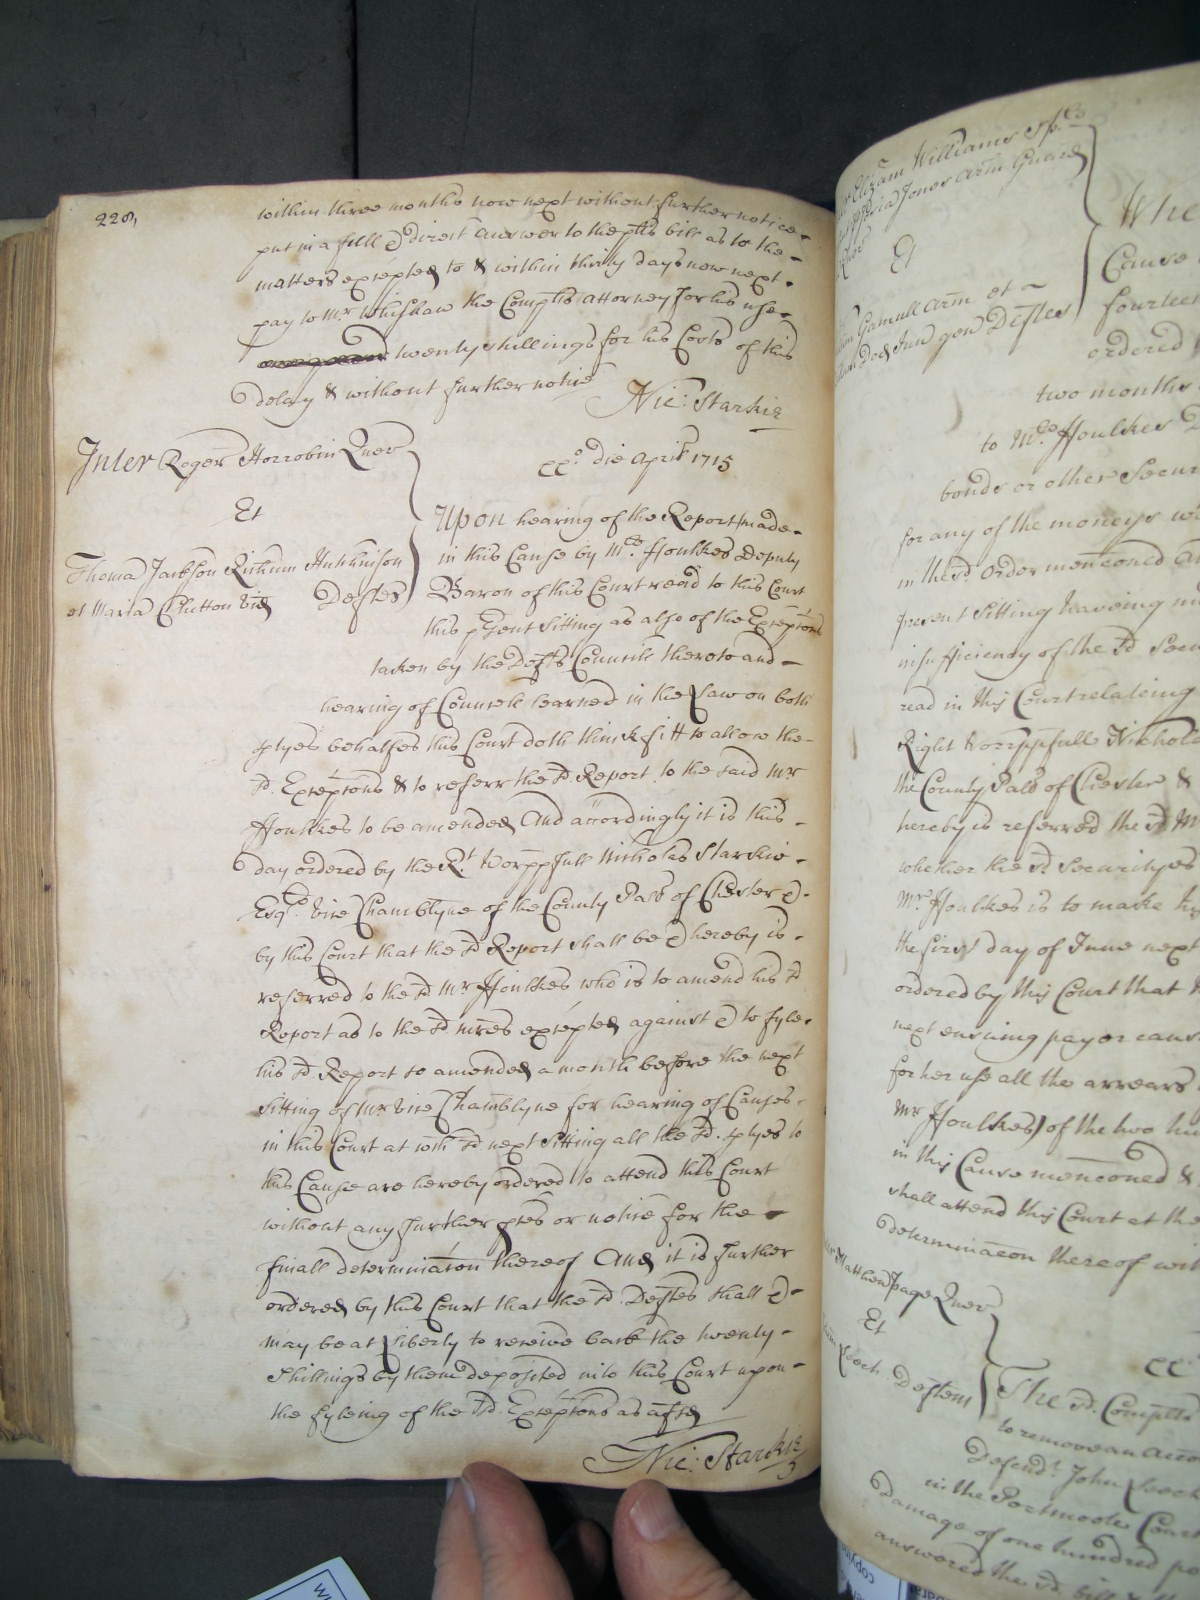 228
within three months now next without further notice
put in a full & direct Answer to the plts bill as to the
matters excepted to & within thirty days now next
pay to Mr Whishaw the Complts Attorney for his use
twenty shillings for his Costs of this
delay & without further notice
Nic: Starkie
Inter Roger Horrobin Quer
Et
Thoma Jackson Richum Hutchinson
et Maria Chetton vid Deftes
eeo die April 1715
Upon hearing of the Report made
in this Cause by Mr ffoulkes Deputy
Baron of this Court read to this Court
this psent sitting as also of the Exceptons
taken by the Defts Councill thereto and
hearing of Councell learned in the Law on both
ptyes behalfes this Court doth think fitt to allow the
sd Exceptons & to referr the sd Report to the said Mr
ffoulkes to be amended And accordingly it is this
day ordered by the Rt Worppfull Nicholas Starkie
Esqr Vice Chamblyne of the County Pall of Chester &
by this Court that the sd Report shall be & hereby is
referred to the sd Mr ffoulkes who is to amend his sd
Report as to the sd mres excepted against & to fyle
his sd Report so amended a month before the next
sitting of Mr Vice Chamblyne for hearing of Causes
in this Court at wch sd next sitting all the sd ptyes to
this Cause are hereby ordered to attend this Court
without any further pces or notice for the
finall determinacon thereof And it is further
ordered by this Court that the sd Deftes shall &
may be at Liberty to receive back the twenty
Shillings by them deposited into this Court upon
the fyleing of the sd Exceptons as afsd
Nic: Starkie
Elizam Williams
Jones Arm Guard
Et
Gamull Arm et
gen Deftes
Whe
Cause
fourteen
ordered
two months
to Mr ffoulkes
bonds or other Secur
for any of the moneys
in the sd Order menconed
present Sitting haveing
insufficiency of the sd Secu
read in this Court relateing
Right Worppfull Nichola
the County Pall of Chester &
hereby is referred the sd M
whether the sd Securityes
Mr ffoulkes is to make
the first day of June next
ordered by this Court that
next ensuing pay or cause
for her use all the arrears
Mr ffoulkes) of the two hu
in this Cause menconed &
shall attend this Court at the
determinacon thereof wit
Matthew Page Quer
Et
Leech Deftem
ee
The sd Complts
to remove an accon
Defendt John Leech
in the Portmoote Court
damage of one hundred po
answered the sd bill